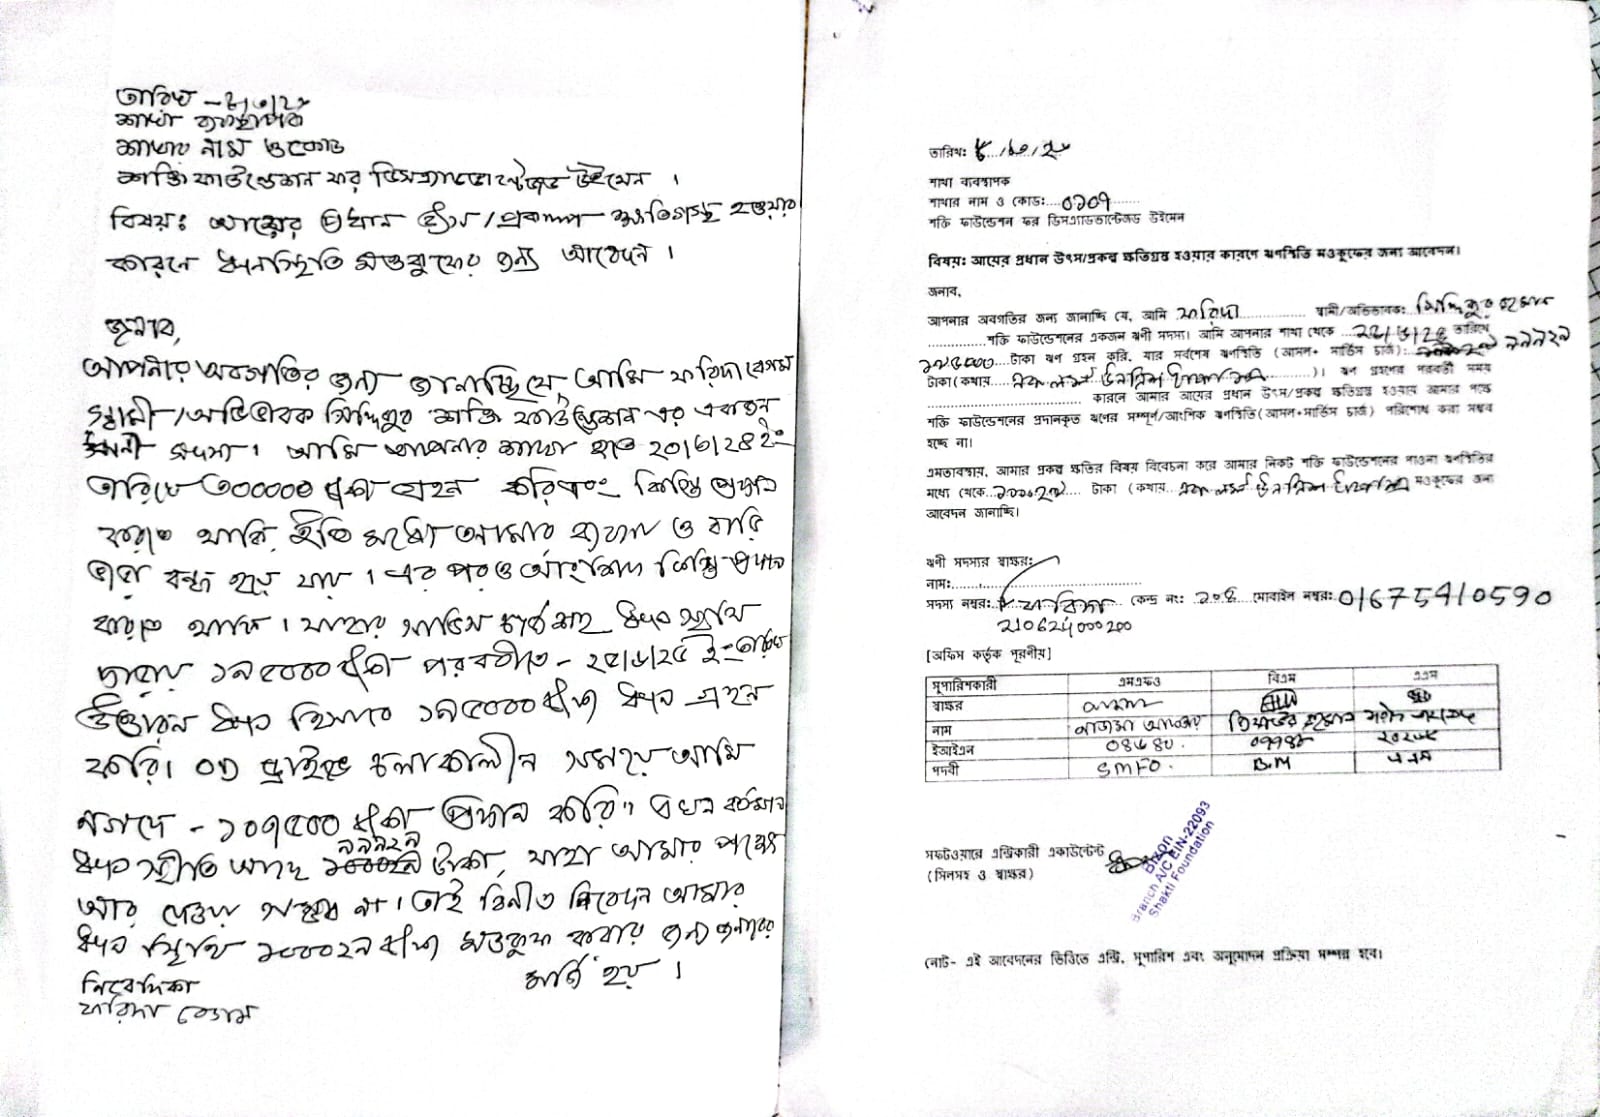 তারিখ -
শাখা ব্যবস্থাপক
শাখার নাম ও কোড
শক্তি ফাউন্ডেশন ফর ডিসএ্যাডভান্টেজড উইমেন ।
বিষয়ঃ আয়ের প্রধান উৎস/প্রকল্প ক্ষতিগ্রস্থ হওয়ার
কারনে ঋনস্থিতি মওকুফের জন্য আবেদন ।
জনাব,
আপনার অবগতির জন্য জানাচ্ছি যে, আমি ফরিদা বেগম
স্বামী/অভিভাবক সিদ্দিকুর শক্তি ফাউন্ডেশন এর একজন
ঋনী সদস্য। আমি আপনার শাখা হতে ২০/৬/২৪ ইং
তারিখে ৩০০০০০ টাকা গ্রহন করি এবং কিস্তি প্রদান
করতে থাকি, ইতি মধ্যে আমার ব্যবসা ও বাড়ি
ভাড়া বন্ধ হয়ে যায়। এর পরও আংশিক কিস্তি প্রদান
করতে থাকি। যাহার সার্ভিস চার্জ সহ ঋন স্থিতি
দাড়ায় ১৯৫০০০ টাকা পরবর্তীতে - ২৫/৬/২৫ ইং তারিখ
উত্তোরন ঋন হিসাবে ১৯৫০০০ টাকা ঋন গ্রহন
করি। চলাকালীন সময়ে আমি
নগদে - ১০৭৫০০ টাকা প্রদান করি। এখন বর্তমান
৯৯৯২৯
ঋন স্থিতি আছে টাকা, যাহা আমার পক্ষে
আর দেওয়া সম্ভব না। তাই বিনীত নিবেদন আমার
ঋন স্থিতি ১০০০২৯ টাকা মওকুফ করার জন্য জনাবের
মর্জি হয় ।
নিবেদিকা
ফরিদা বেগম
তারিখঃ ৮/১০/২৫
শাখা ব্যবস্থাপক
শাখার নাম ও কোডঃ ০১০৭
শক্তি ফাউন্ডেশন ফর ডিসএ্যাডভান্টেজড উইমেন
বিষয়ঃ আয়ের প্রধান উৎস/প্রকল্প ক্ষতিগ্রস্থ হওয়ার কারণে ঋণস্থিতি মওকুফের জন্য আবেদন।
জনাব,
আপনার অবগতির জন্য জানাচ্ছি যে, আমি ফরিদা স্বামী/অভিভাবকঃ সিদ্দিকুর রহমান
শক্তি ফাউন্ডেশনের একজন ঋণী সদস্য। আমি আপনার শাখা থেকে ২৫/৬/২৫ তারিখে
১৯৫০০০ টাকা ঋণ গ্রহন করি, যার সর্বশেষ ঋণস্থিতি (আসল+ সার্ভিস চার্জ): ৯৯৯২৯
টাকা(কথায়)। ঋণ গ্রহণের পরবর্তী সময়
কারণে আমার আয়ের প্রধান উৎস/প্রকল্প ক্ষতিগ্রস্থ হওয়ায় আমার পক্ষে
শক্তি ফাউন্ডেশনের প্রদানকৃত ঋণের সম্পূর্ণ/আংশিক ঋণস্থিতি(আসল+সার্ভিস চার্জ) পরিশোধ করা সম্ভব
হচ্ছে না।
এমতাবস্থায়, আমার প্রকল্প ক্ষতির বিষয় বিবেচনা করে আমার নিকট শক্তি ফাউন্ডেশনের পাওনা ঋণস্থিতির
মধ্যে থেকে টাকা (কথায় মওকুফের জন্য
আবেদন জানাচ্ছি।
ঋণী সদস্যর স্বাক্ষরঃ
নামঃ
সদস্য নম্বরঃ ফরিদা কেন্দ্র নং: ১০৪ মোবাইল নম্বরঃ 01675410590
210624000200
[অফিস কর্তৃক পূরণীয়]
সুপারিশকারী এমএফও বিএম এএম
স্বাক্ষর
নাম নাজমা আক্তার
ইআইএন
পদবী SMFO. B.M এএম
সফটওয়ারে এন্ট্রিকারী একাউন্টেন্ট
(সিলসহ ও স্বাক্ষর)
Bizon
Branch A/C EIN-22093
Shakti Foundation
নোট- এই আবেদনের ভিত্তিতে এন্ট্রি, সুপারিশ এবং অনুমোদন প্রক্রিয়া সম্পন্ন হবে।